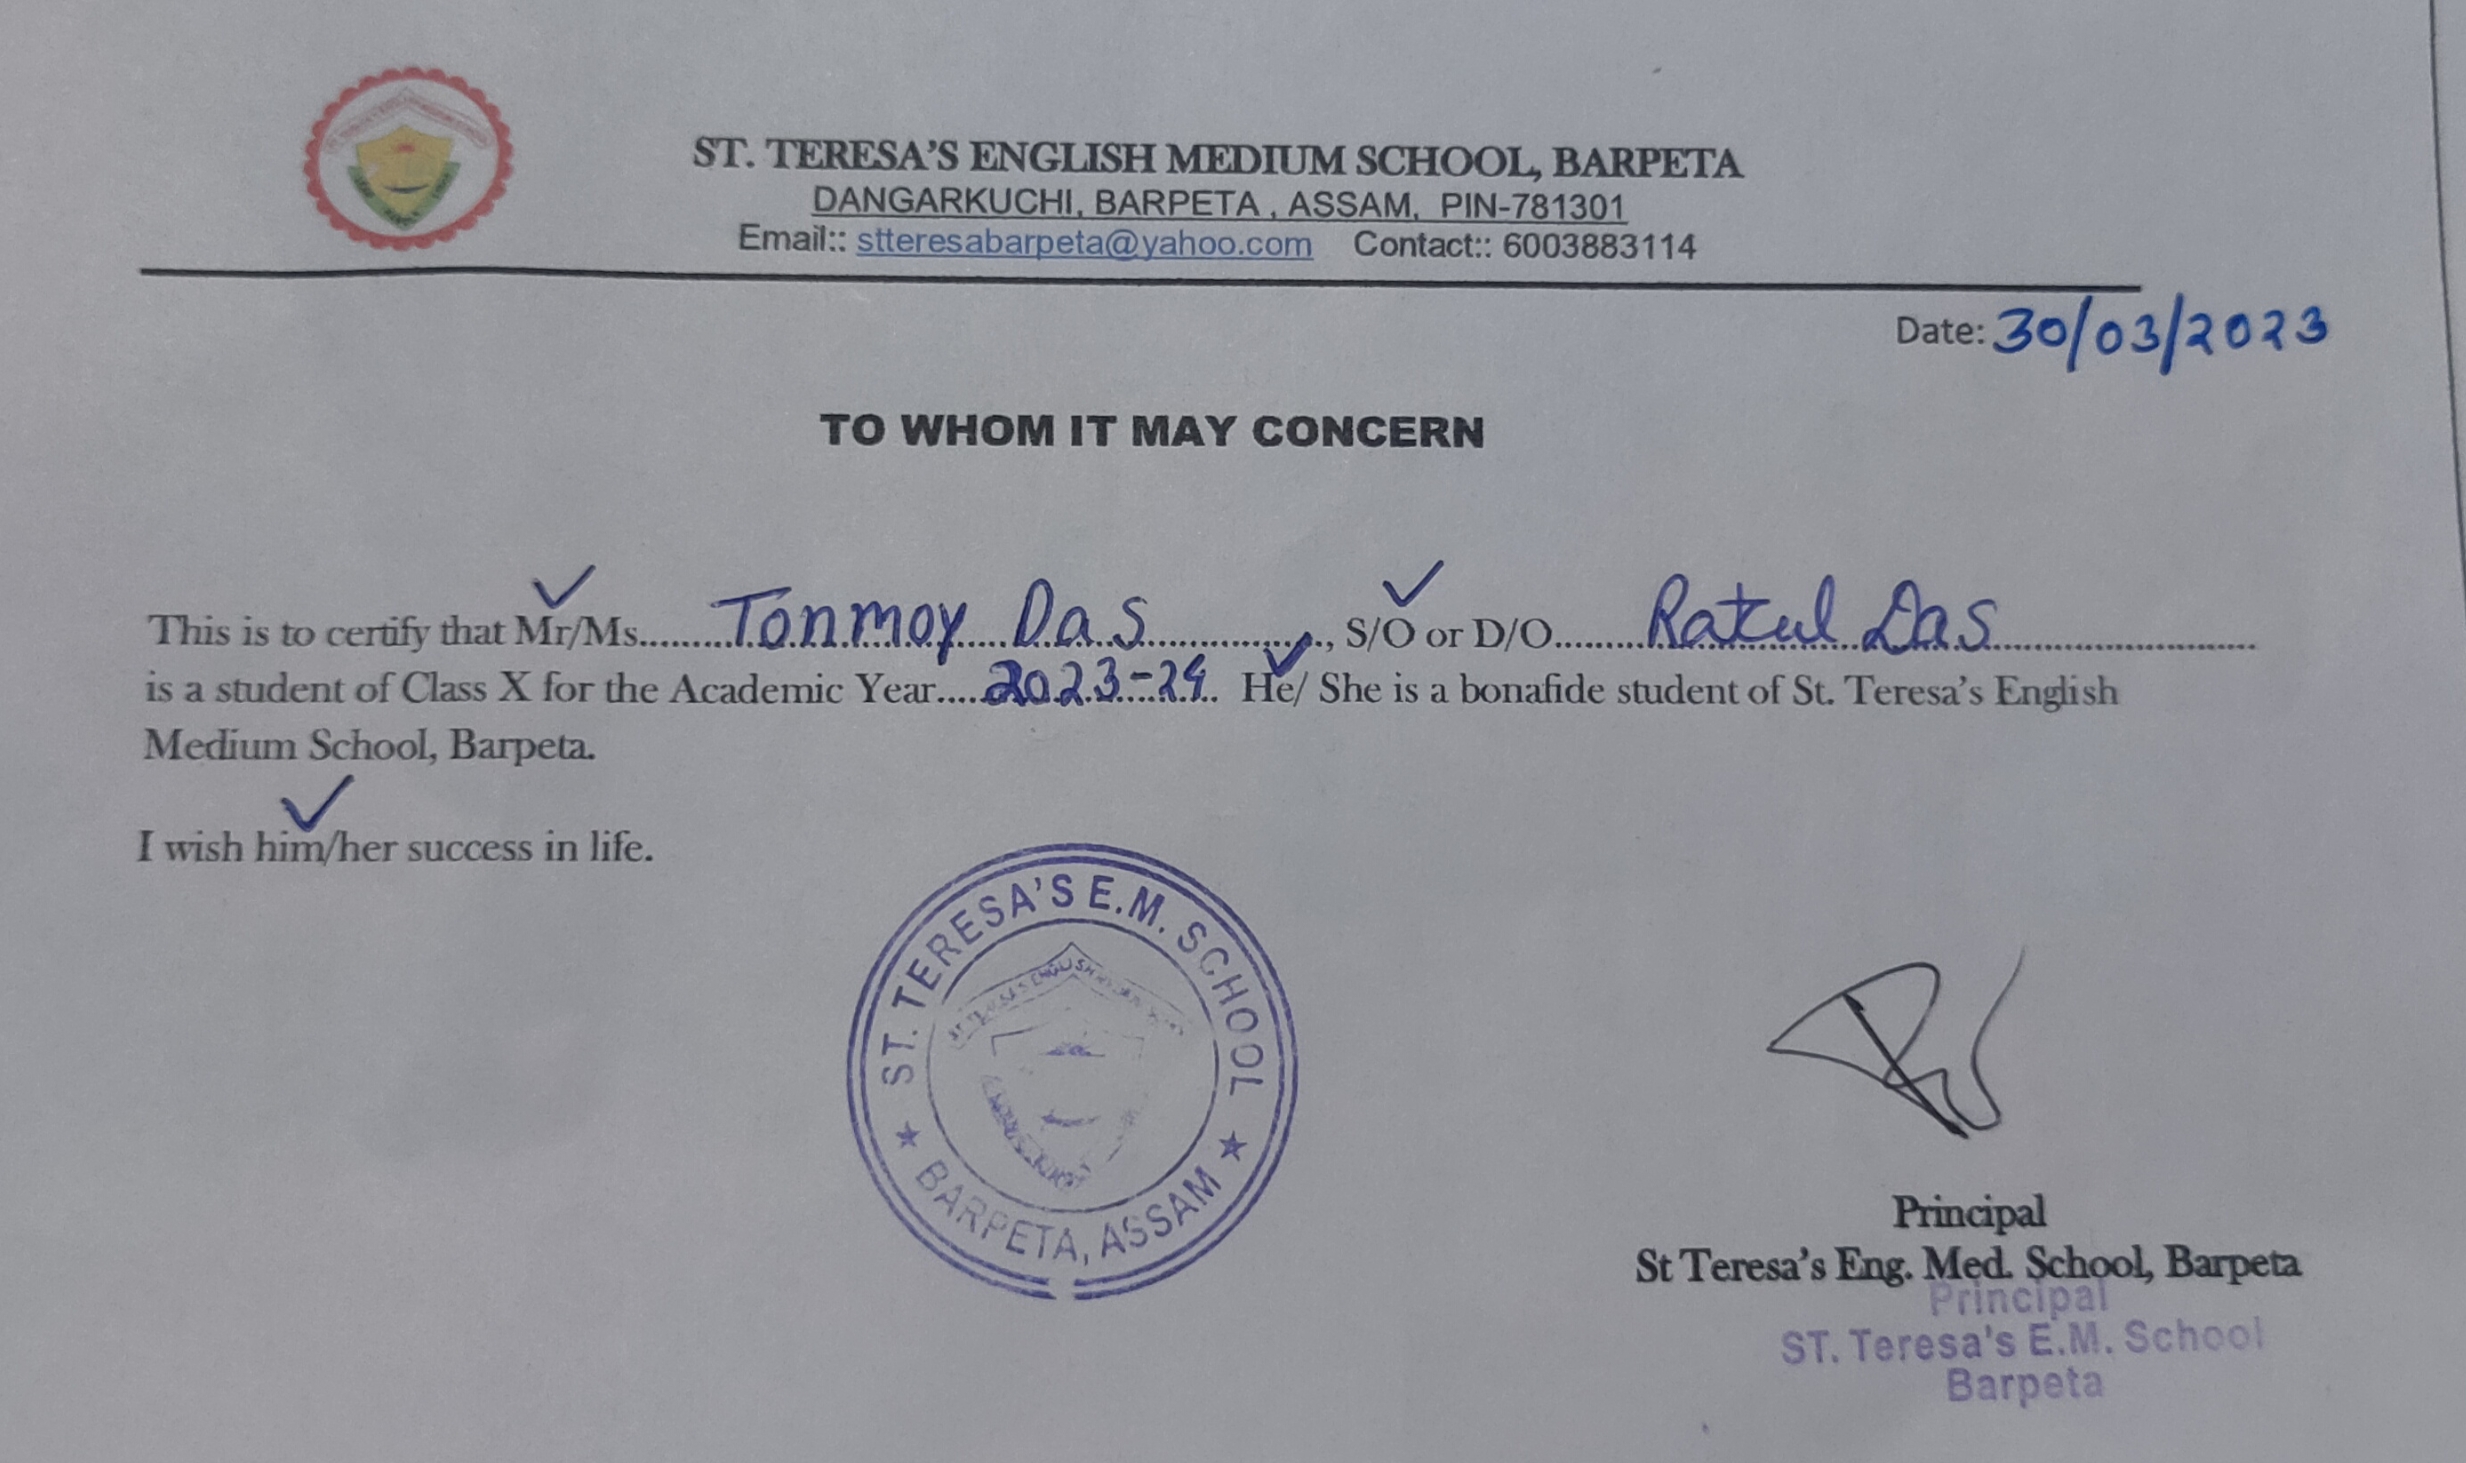 ST. TERESA'S ENGLISH MEDIUM SCHOOL, BARPETA
DANGARKUCHI, BARPETA , ASSAM, PIN-781301
Email:: stteresabarpeta@yahoo.com Contact:: 6003883114
Date: 30/03/2023
TO WHOM IT MAY CONCERN
This is to certify that Mr/Ms.........Tonmoy Das................., S/O or D/O.........Ratul Das.........................
is a student of Class X for the Academic Year.....2023-24.. He/ She is a bonafide student of St. Teresa's English
Medium School, Barpeta.
I wish him/her success in life.
ST. TERESA'S E.M. SCHOOL
★ BARPETA, ASSAM ★
Principal
St Teresa's Eng. Med. School, Barpeta
Principal
ST. Teresa's E.M. School
Barpeta